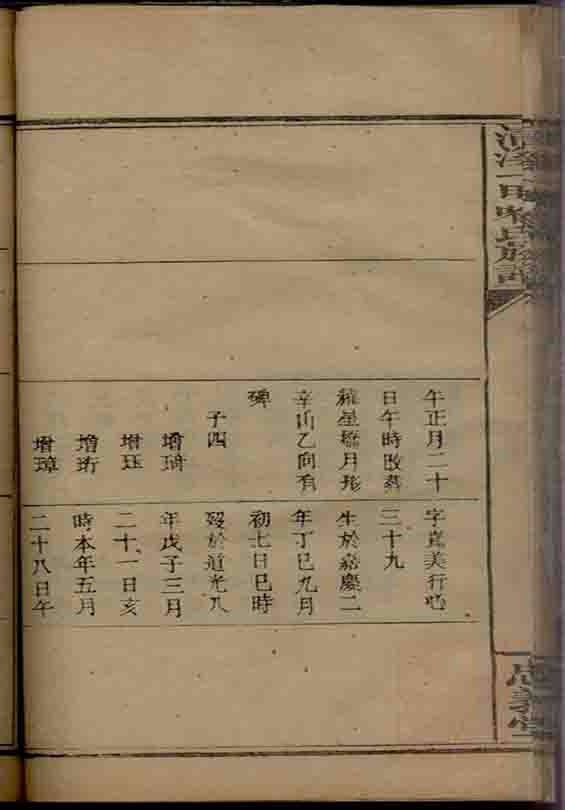 氏族譜
忠義堂
午正月二十
日午時改葬
羅星橋月形
辛山乙向有
碑
子四
增琦
增珏
增珩
增璋
字嘉美行
三十九
生於嘉慶二
年丁巳九月
初七日巳時
歿於道光八
年戊子三月
二十一日亥
時本年五月
二十八日午